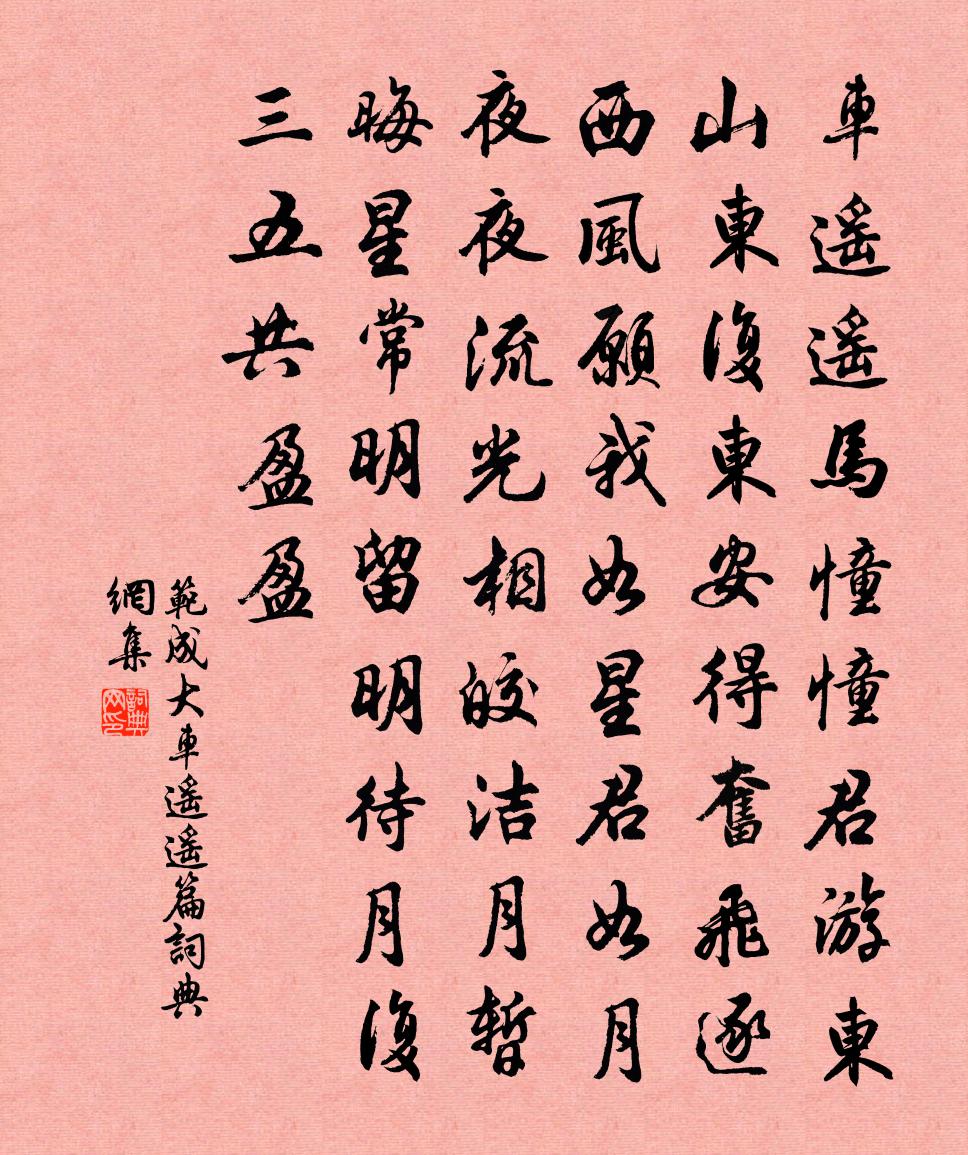 車遥遥馬憧憧君游東
山東復東安得奮飛逐
西風願我如星君如月
夜夜流光相皎洁月暫
晦星常明留明待月復
三五共盈盈
範成大車遥遥篇詞典
網集
詞典
网印